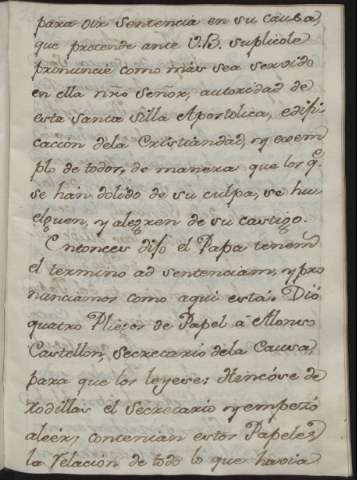 para oir sentencia en su causa,
que procende ante V.B. suplicole
pronuncie como más sea servido
en ella nro Señor, autoridad de
esta santa silla Apostolica, edifi
cación dela Cristiandad, y exem
plo de todos, de manera que los q.e
se han dolido de su culpa, se hu
elguen, y alegren de su castigo.
Entonces dijo el Papa tenem.s
el termino ad sentenciam, y pro
nunciamos como aqui está. Dió
quatro Pliegos de Papel á Alonso
Castellon, secretario dela Causa,
para que los leyese: Hincóse de
rodillas el secretario y empezó
aleér, contenian estos Papeles
la relación de todo lo que havia